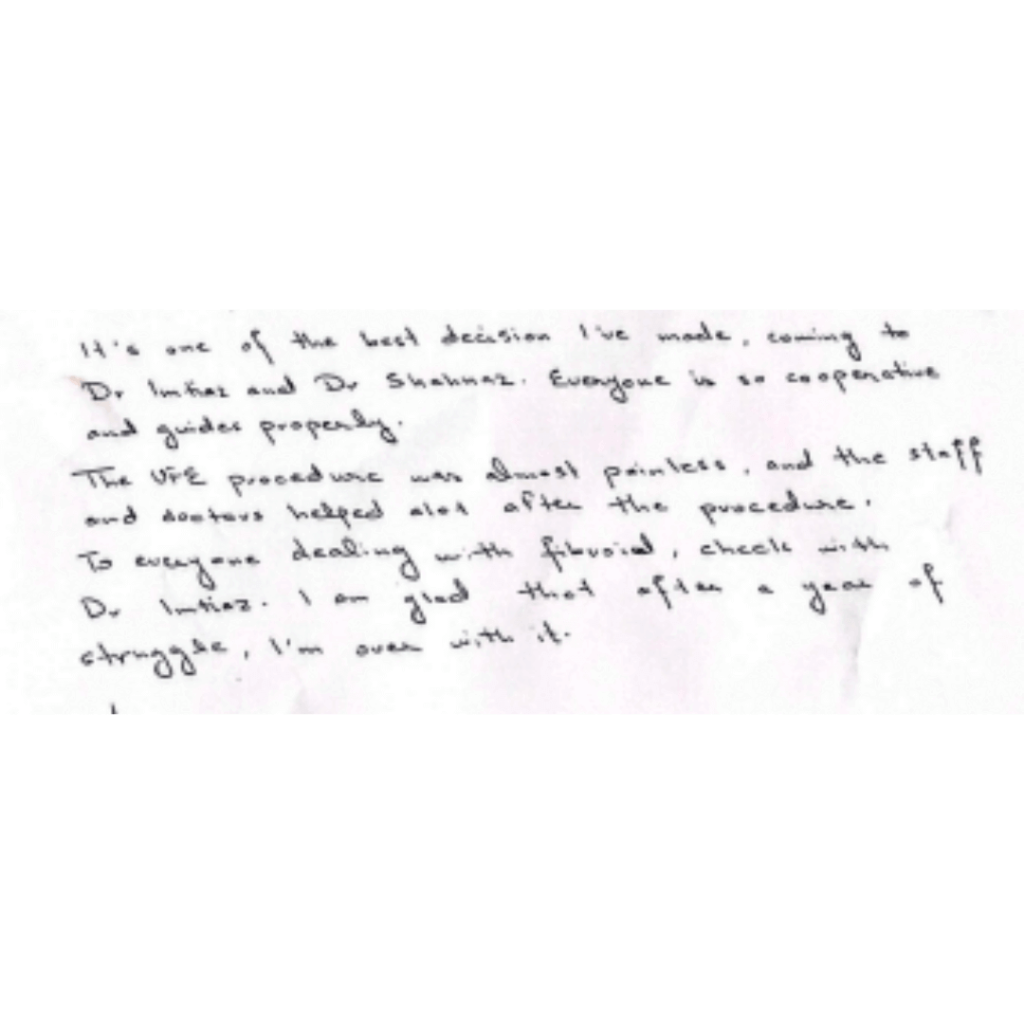 It's one of the best decision I've made, coming to
Dr Imtiaz and Dr Shahnaz. Everyone is so cooperative
and guides properly.
The UFE procedure was almost painless, and the staff
and doctors helped alot after the procedure.
To everyone dealing with fibroid, check with
Dr Imtiaz. I am glad that after a year of
struggle, I'm over with it.